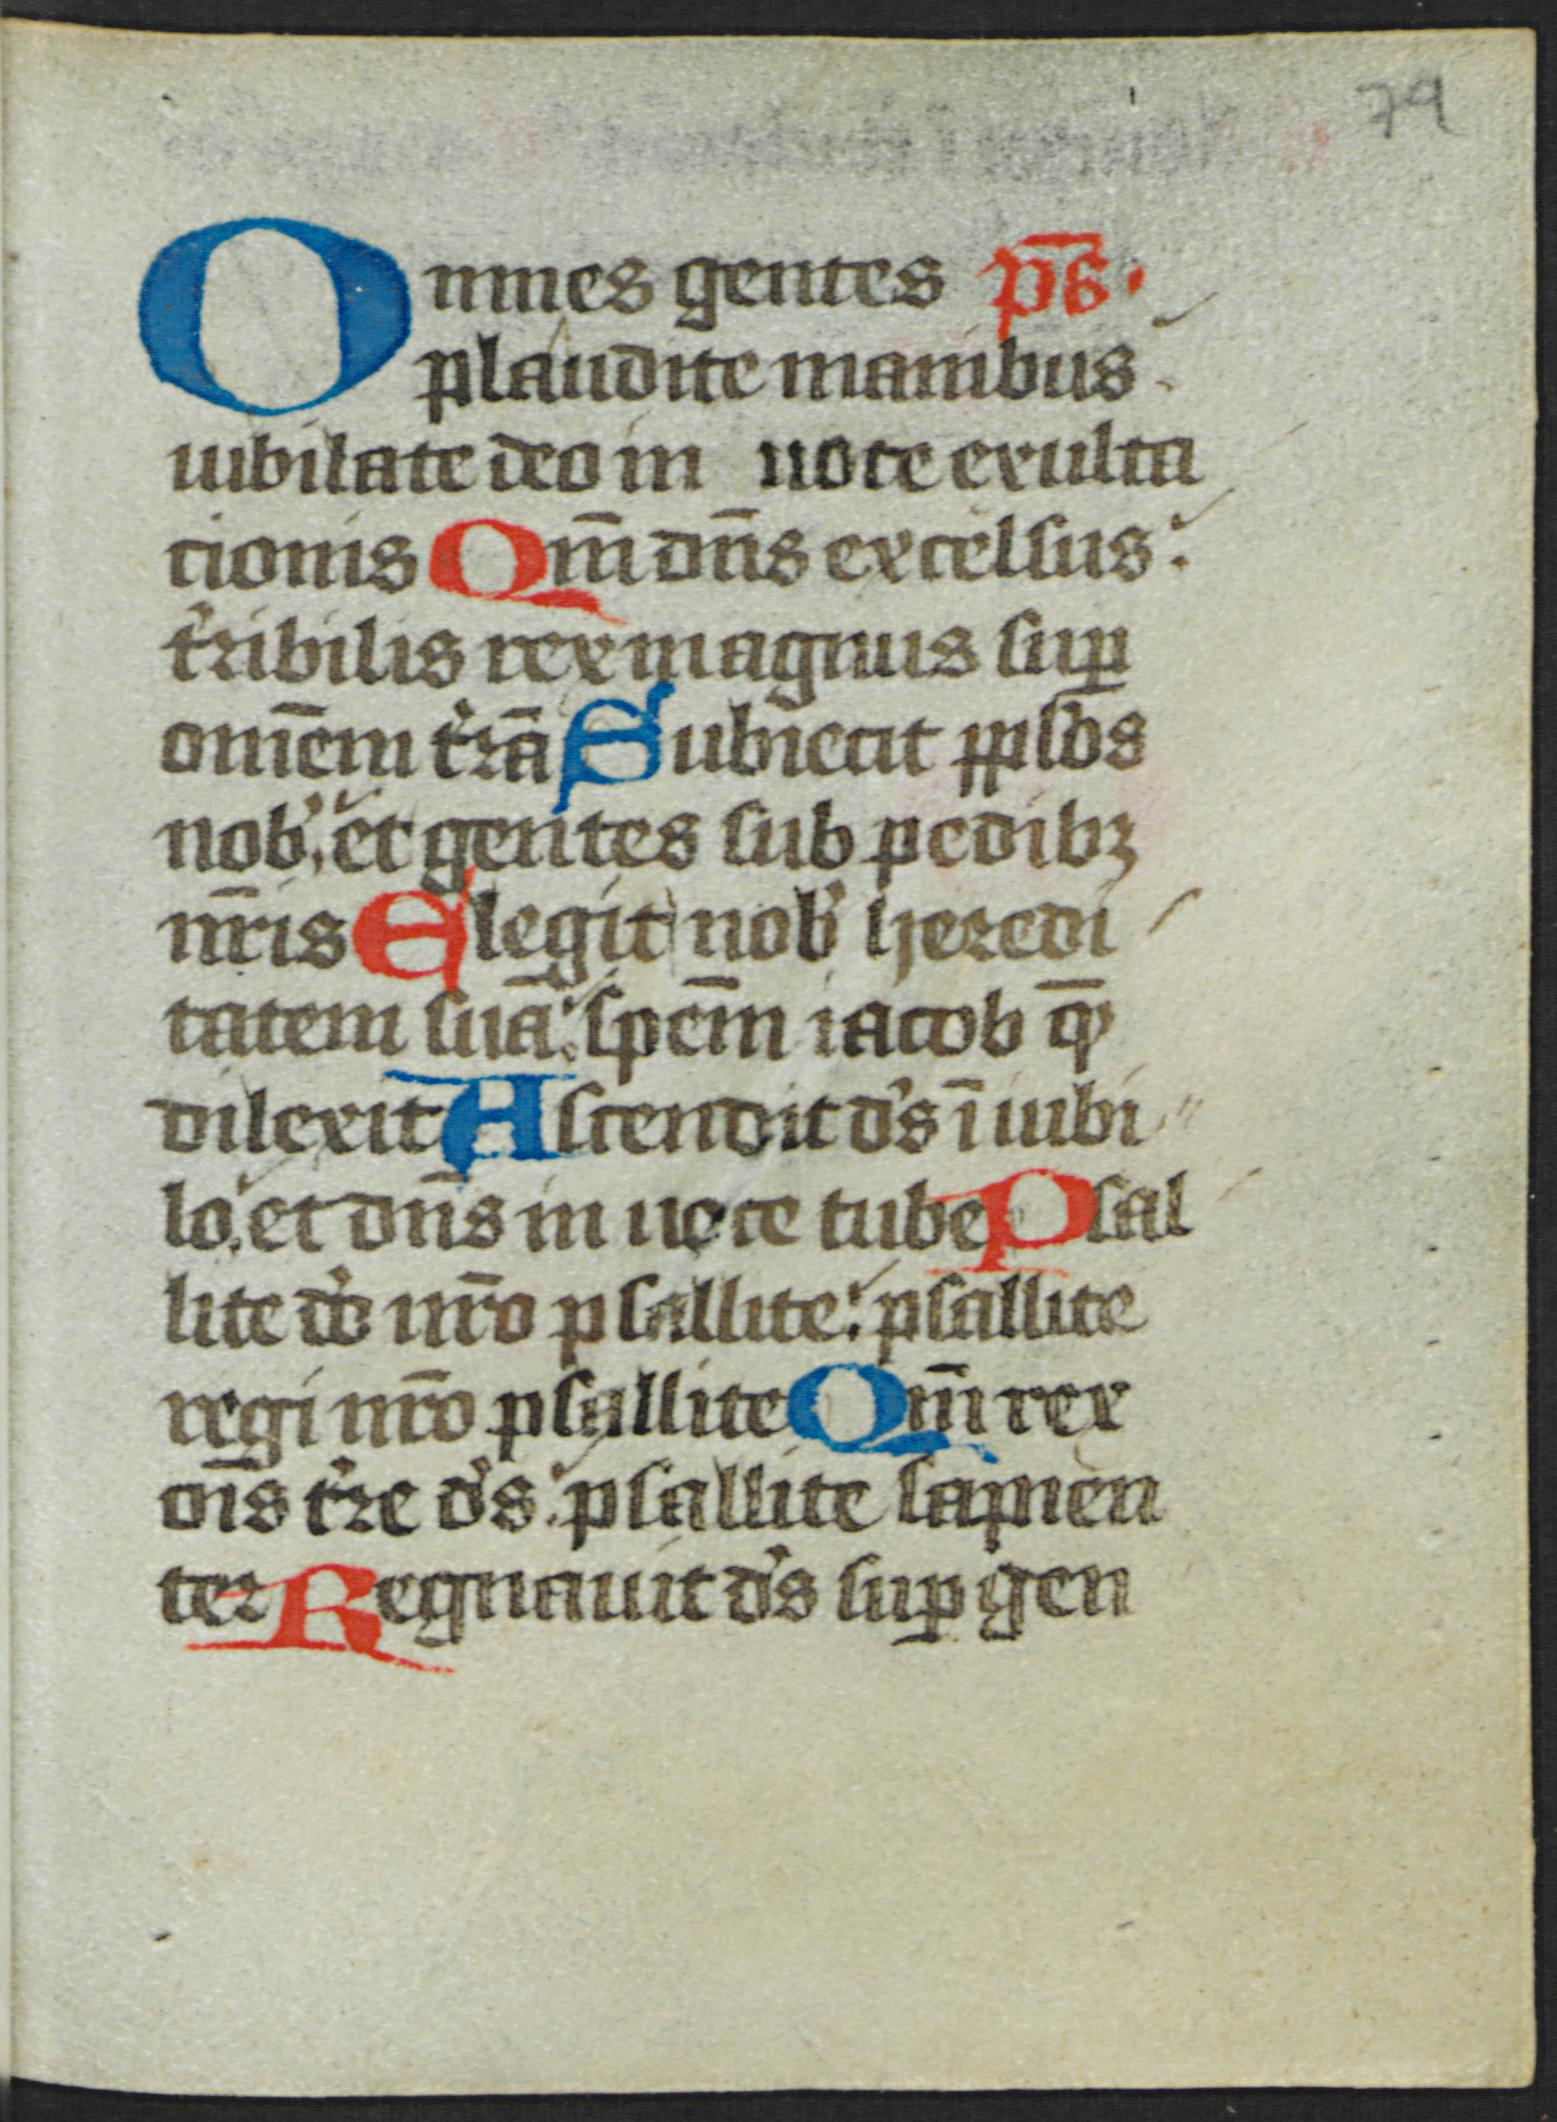 79
Omnes gentes p̄s.
plaudite manibus
iubilate deo in uoce exulta
cionis Qm̄ dn̄s excelsus:
t̓ribilis rex magnus sup̱
om̄em t̓rā Subiecit pp̱l̓os
nob̓. et gentes sub pedibꝫ
nr̄is Elegit nob̓ heredi
tatem suā: sp̄em iacob q̄
dilexit Ascendit d̓s ī iubi
lo. et dn̄s in uoce tube Psal
lite d̓o nr̄o psallite: psallite
regi nr̄o psallite Qm̄ rex
om̄s t̓re d̓s. psallite sapien
ter Regnauit d̓s sup̱ gen